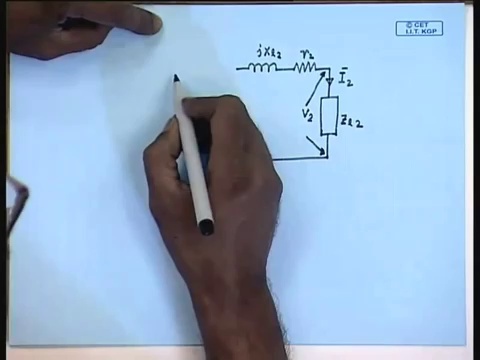 © CET
I.I.T. KGP
jxl2 r2
Ī2
V2
Zl2